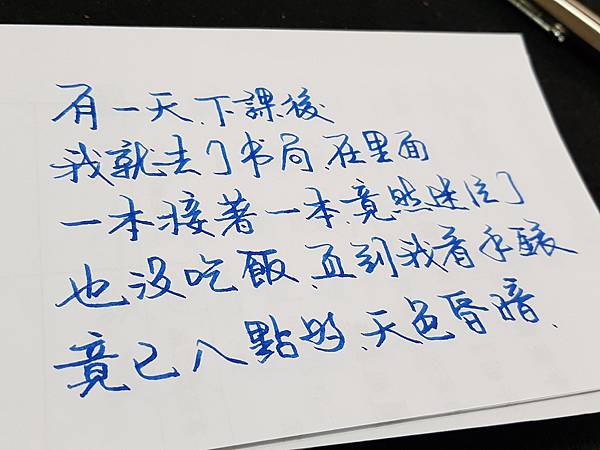 有一天、下課後
我就去了书局、在里面
一本接著一本、竟然迷住了
也沒吃飯、直到我看手錶
竟已八點時、天色昏暗、